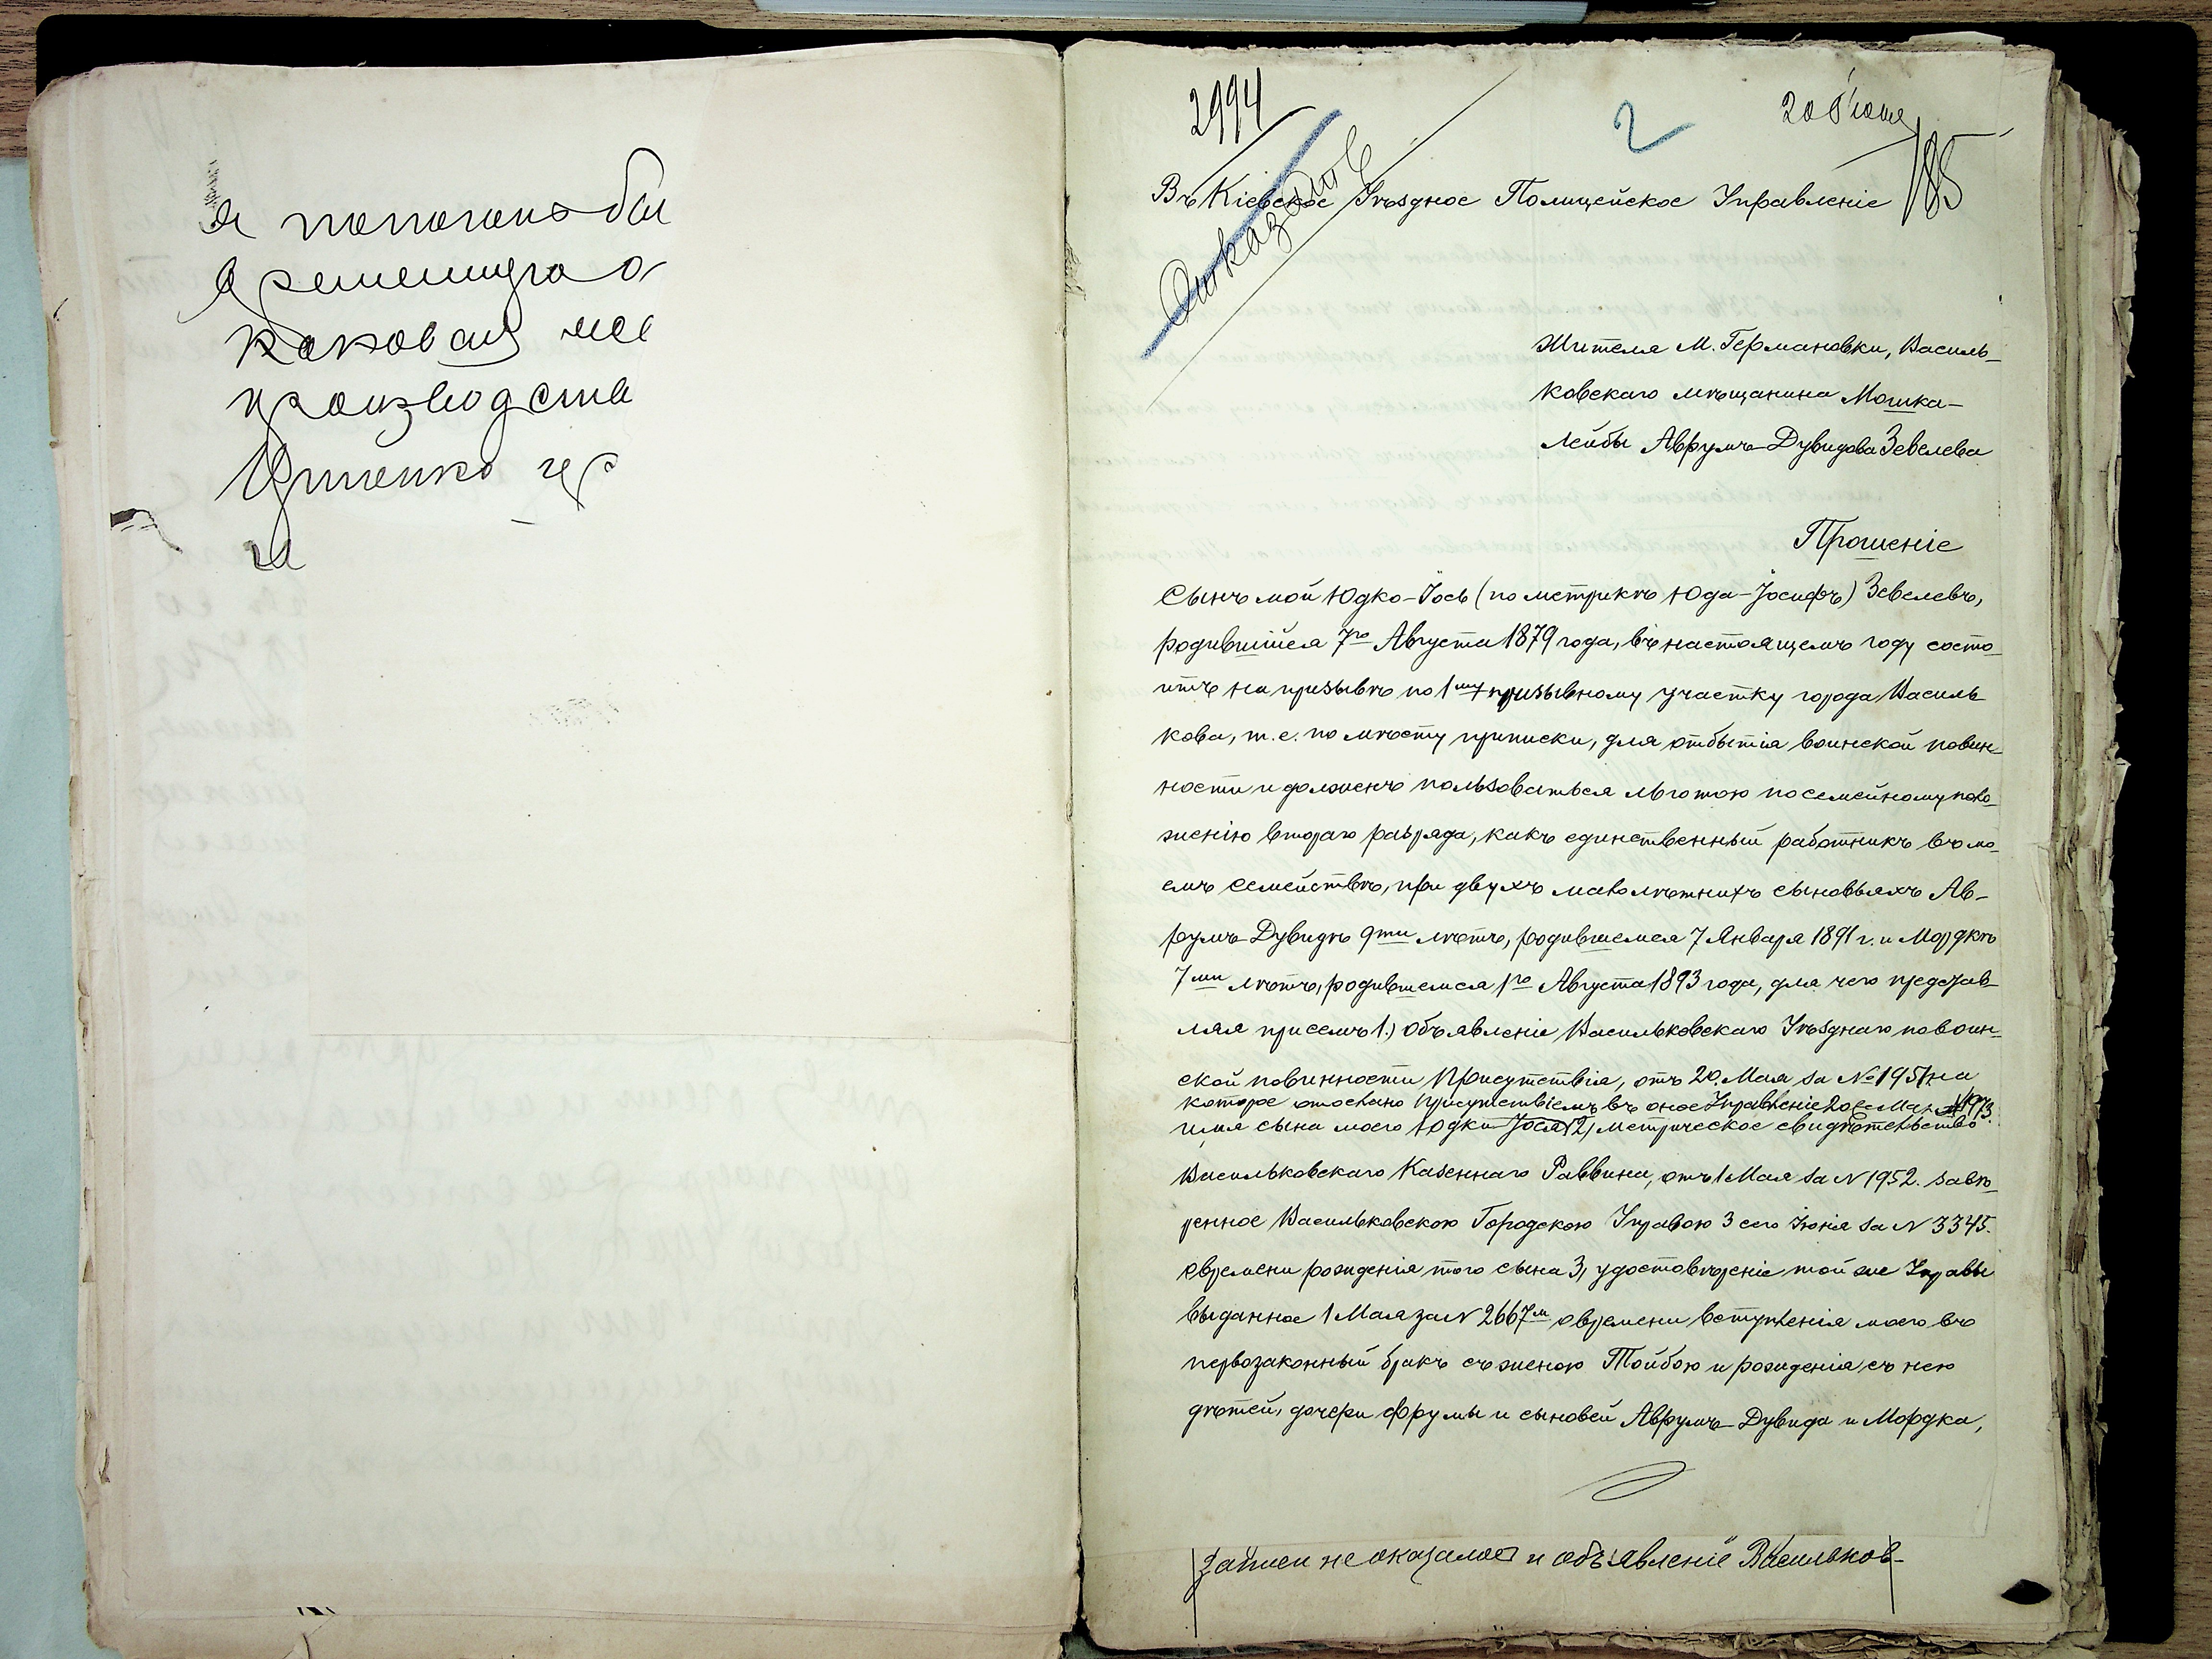 и
производства
2994
2
20 Іюня
185
Отказать
Въ Кіевское Уѣздное Полицейское Управленіе
Жителя М. Германовки, Василь-
ковскаго мѣщанина Мошка-
Лейбы Аврумъ-Дувидова Зевелева
Прошеніе
Сынъ мой Юдко-Іось (по метрикѣ Юда-Іосифъ) Зевелевъ,
родившійся 7го Августа 1879 года, въ настоящемъ году состо-
итъ на призывѣ по 1му призывному участку города Василь
кова, т.е. по мѣсту приписки, для отбытія воинской повин-
ности и долженъ пользоваться льготою по семейному поло-
женію втораго разряда, какъ единственный работникъ въ мо-
емъ семействѣ, при двухъ малолѣтнихъ сыновьяхъ Ав-
румъ-Дувидѣ 9ти лѣтъ, родившемся 7 Января 1891 г. и Мордкѣ
7ми лѣтъ, родившемся 1го Августа 1893 года, для чего представ-
ляя при семъ 1.) Объявленіе Васильковскаго Уѣзднаго по воин-
ской повинности Присутствія, отъ 20. Мая за № 1951 на
которое отослано Присутствіемъ въ оное Управленіе 20 Мая № 1973.
имя сына моего Юдки-Іося 2) метрическое свидѣтельство
Васильковскаго Казеннаго Раввина, отъ 1 Мая за N 1952. завѣ-
ренное Васильковскою Городскою Управою 3 сего Іюня за N 3345.
о времени рожденія того сына 3) удостовѣреніе той же Управы
выданное 1 Мая за N 2667м о времени вступленія моего въ
первозаконный бракъ съ женою Тойбою и рожденія съ нею
дѣтей, дочери Фрумы и сыновей Аврумъ-Дувида и Мордка,
записи не оказалось и объявленіе Васильков-